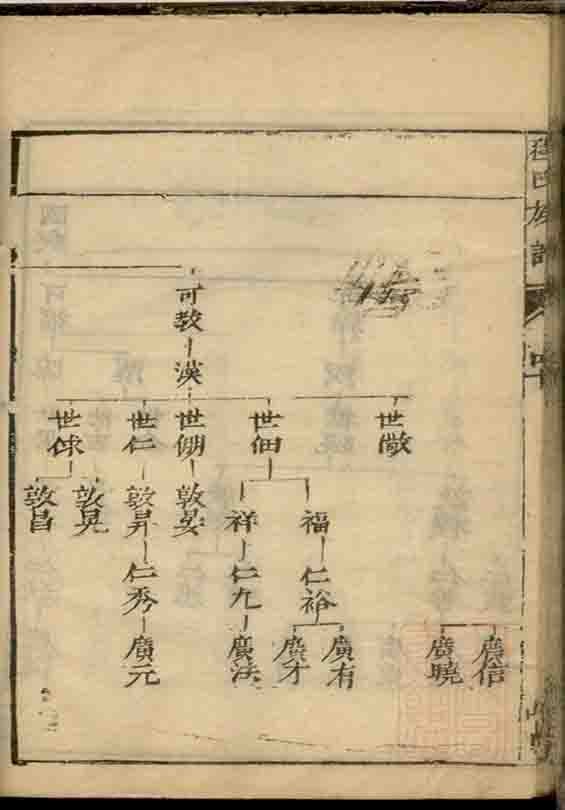 程氏族譜
可教
漢
世儆
世佃
世倗
世仁
世俅
福
祥
敦晏
敦昇
敦晃
敦昌
仁裕
仁九
仁秀
廣信
廣曉
廣有
廣才
廣法
廣元